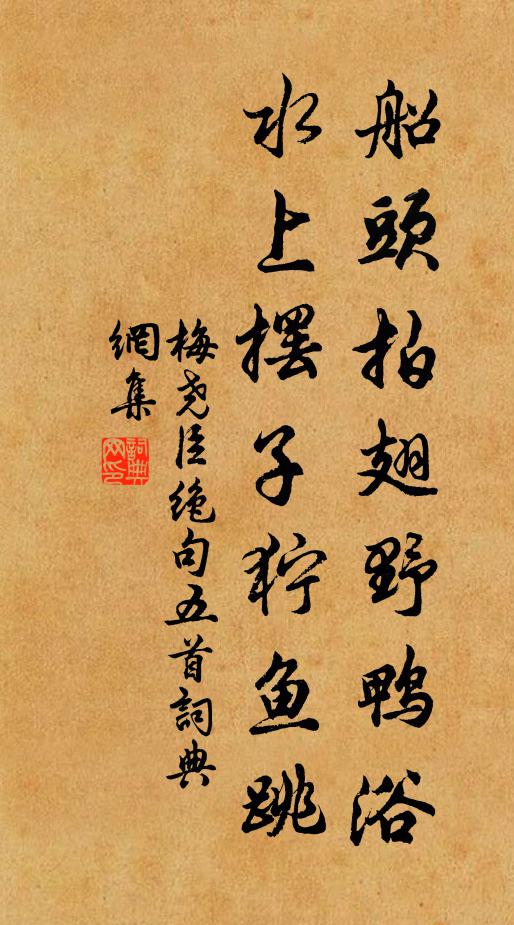 船頭拍翅野鴨浴
水上摆子狞鱼跳
梅尧臣绝句五首詞典
網集
詞典网印